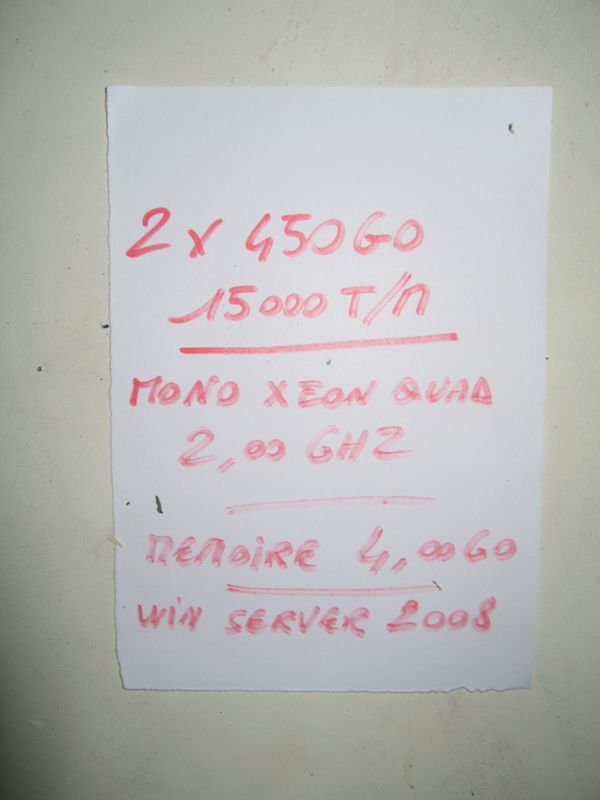 2 X 450GO
15000 T/M
MONO XEON QUAD
2,00 GHZ
MEMOIRE 4,00GO
WIN SERVER 2008